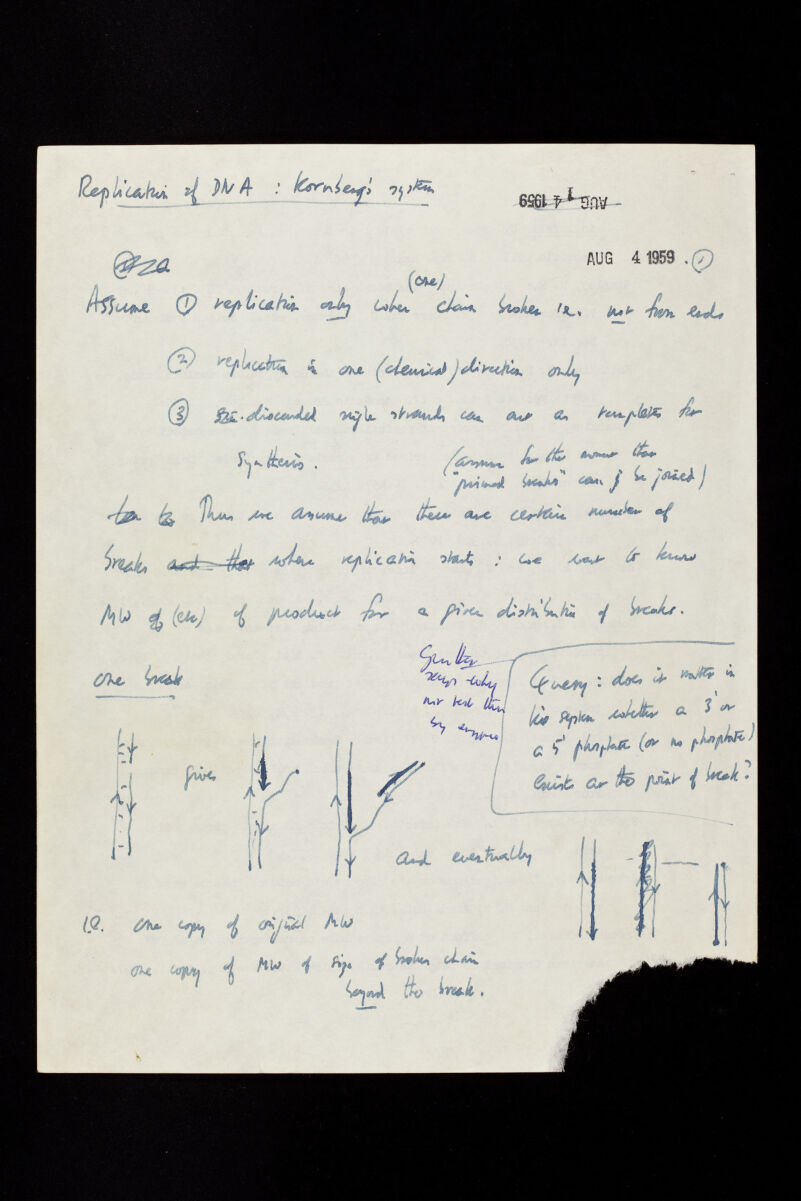 Replication of DNA : Kornberg's system
AUG 4 1959
AUG 4 1959 . ①
(one)
Assume ① replication only when chain broken i.e. not from ends
② replication in one (chemical) direction only
③ discarded single strands can act as templates for
synthesis. (assume for the moment that
"primed breaks" can be joined)
Thus we assume that there are certain number of
breaks and that where replication starts : we want to know
MW of (etc) of product for a given distribution of breaks.
one break
says why
not test this
by enzymes
Query : does it matter in
his system whether a 3' or
a 5' phosphate (or no phosphate)
exists at the point of break?
gives
and eventually
i.e. one copy of original MW
one copy of MW of size of broken chain
beyond the break.